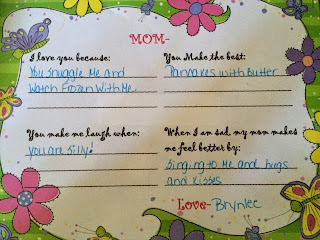 MOM-
I love you because:
You snuggle Me and
Watch Frozen With Me.
You Make the best:
Pancakes with Butter
You make me laugh when:
You are Silly!
When I am sad my mom makes
me feel better by:
Singing to Me and hugs
and Kisses
Love- Brynlee